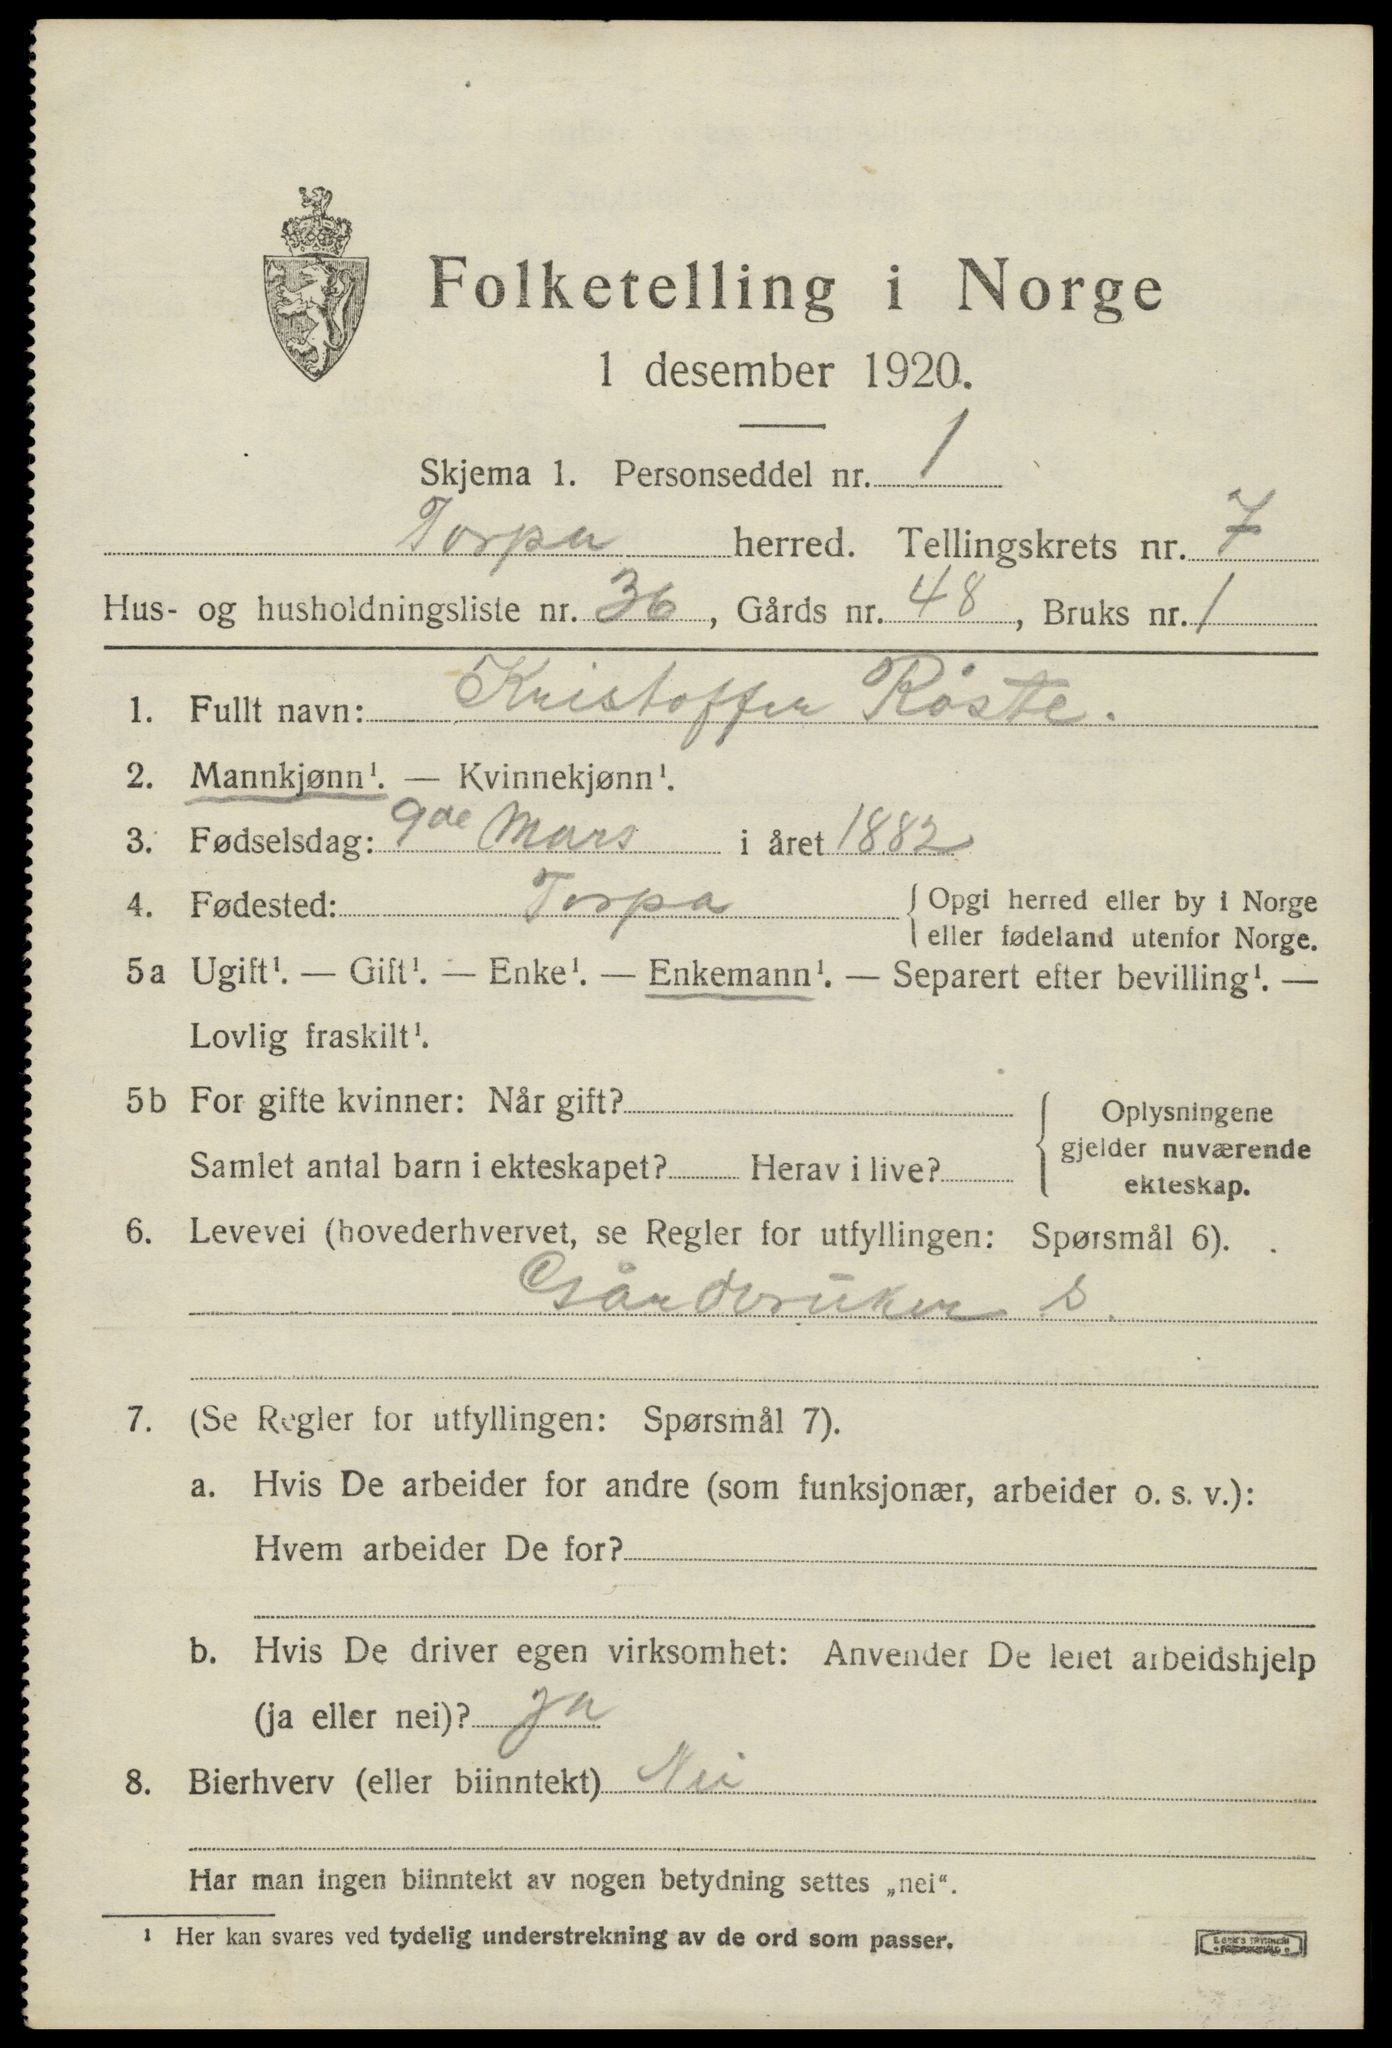 Folketelling i Norge
1 desember 1920.
Skjema 1. Personseddel nr. 1
Torpa herred. Tellingskrets nr. 7
Hus- og husholdningsliste nr. 36, Gårds nr. 48, Bruks nr. 1
1. Fullt navn: Kristoffer Röste.
2. Mannkjønn¹. — Kvinnekjønn¹.
3. Fødselsdag: 9de Mars i året 1882
4. Fødested: Torpa { Opgi herred eller by i Norge
eller fødeland utenfor Norge.
5a Ugift¹. — Gift¹. — Enke¹. — Enkemann¹. — Separert efter bevilling¹. —
Lovlig fraskilt¹.
5b For gifte kvinner: Når gift?
Samlet antal barn i ekteskapet? Herav i live?
{ Oplysningene
gjelder nuværende
ekteskap.
6. Levevei (hovederhvervet, se Regler for utfyllingen: Spørsmål 6).
Gårdbruker S.
7. (Se Regler for utfyllingen: Spørsmål 7).
a. Hvis De arbeider for andre (som funksjonær, arbeider o. s. v.):
Hvem arbeider De for?
b. Hvis De driver egen virksomhet: Anvender De leiet arbeidshjelp
(ja eller nei)? ja
8. Bierhverv (eller biinntekt) Nei
Har man ingen biinntekt av nogen betydning settes „nei“.
¹ Her kan svares ved tydelig understrekning av de ord som passer.